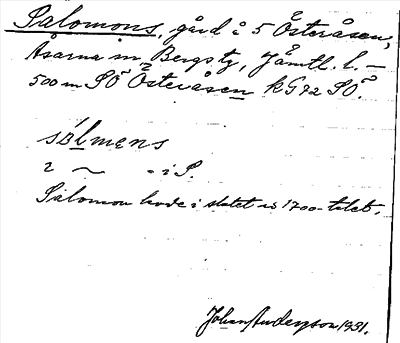 Salomons, gård å 5 Österåsen,
Åsarna sn, Bergs tg, Jämtl. l. —
500 m SÖ Österåsen k G 72 SÖ.
sɑ̀lmɐns
2 ~ - i S.
Salomon levde i slutet av 1700-talet.
Johan Anderzon 1931.